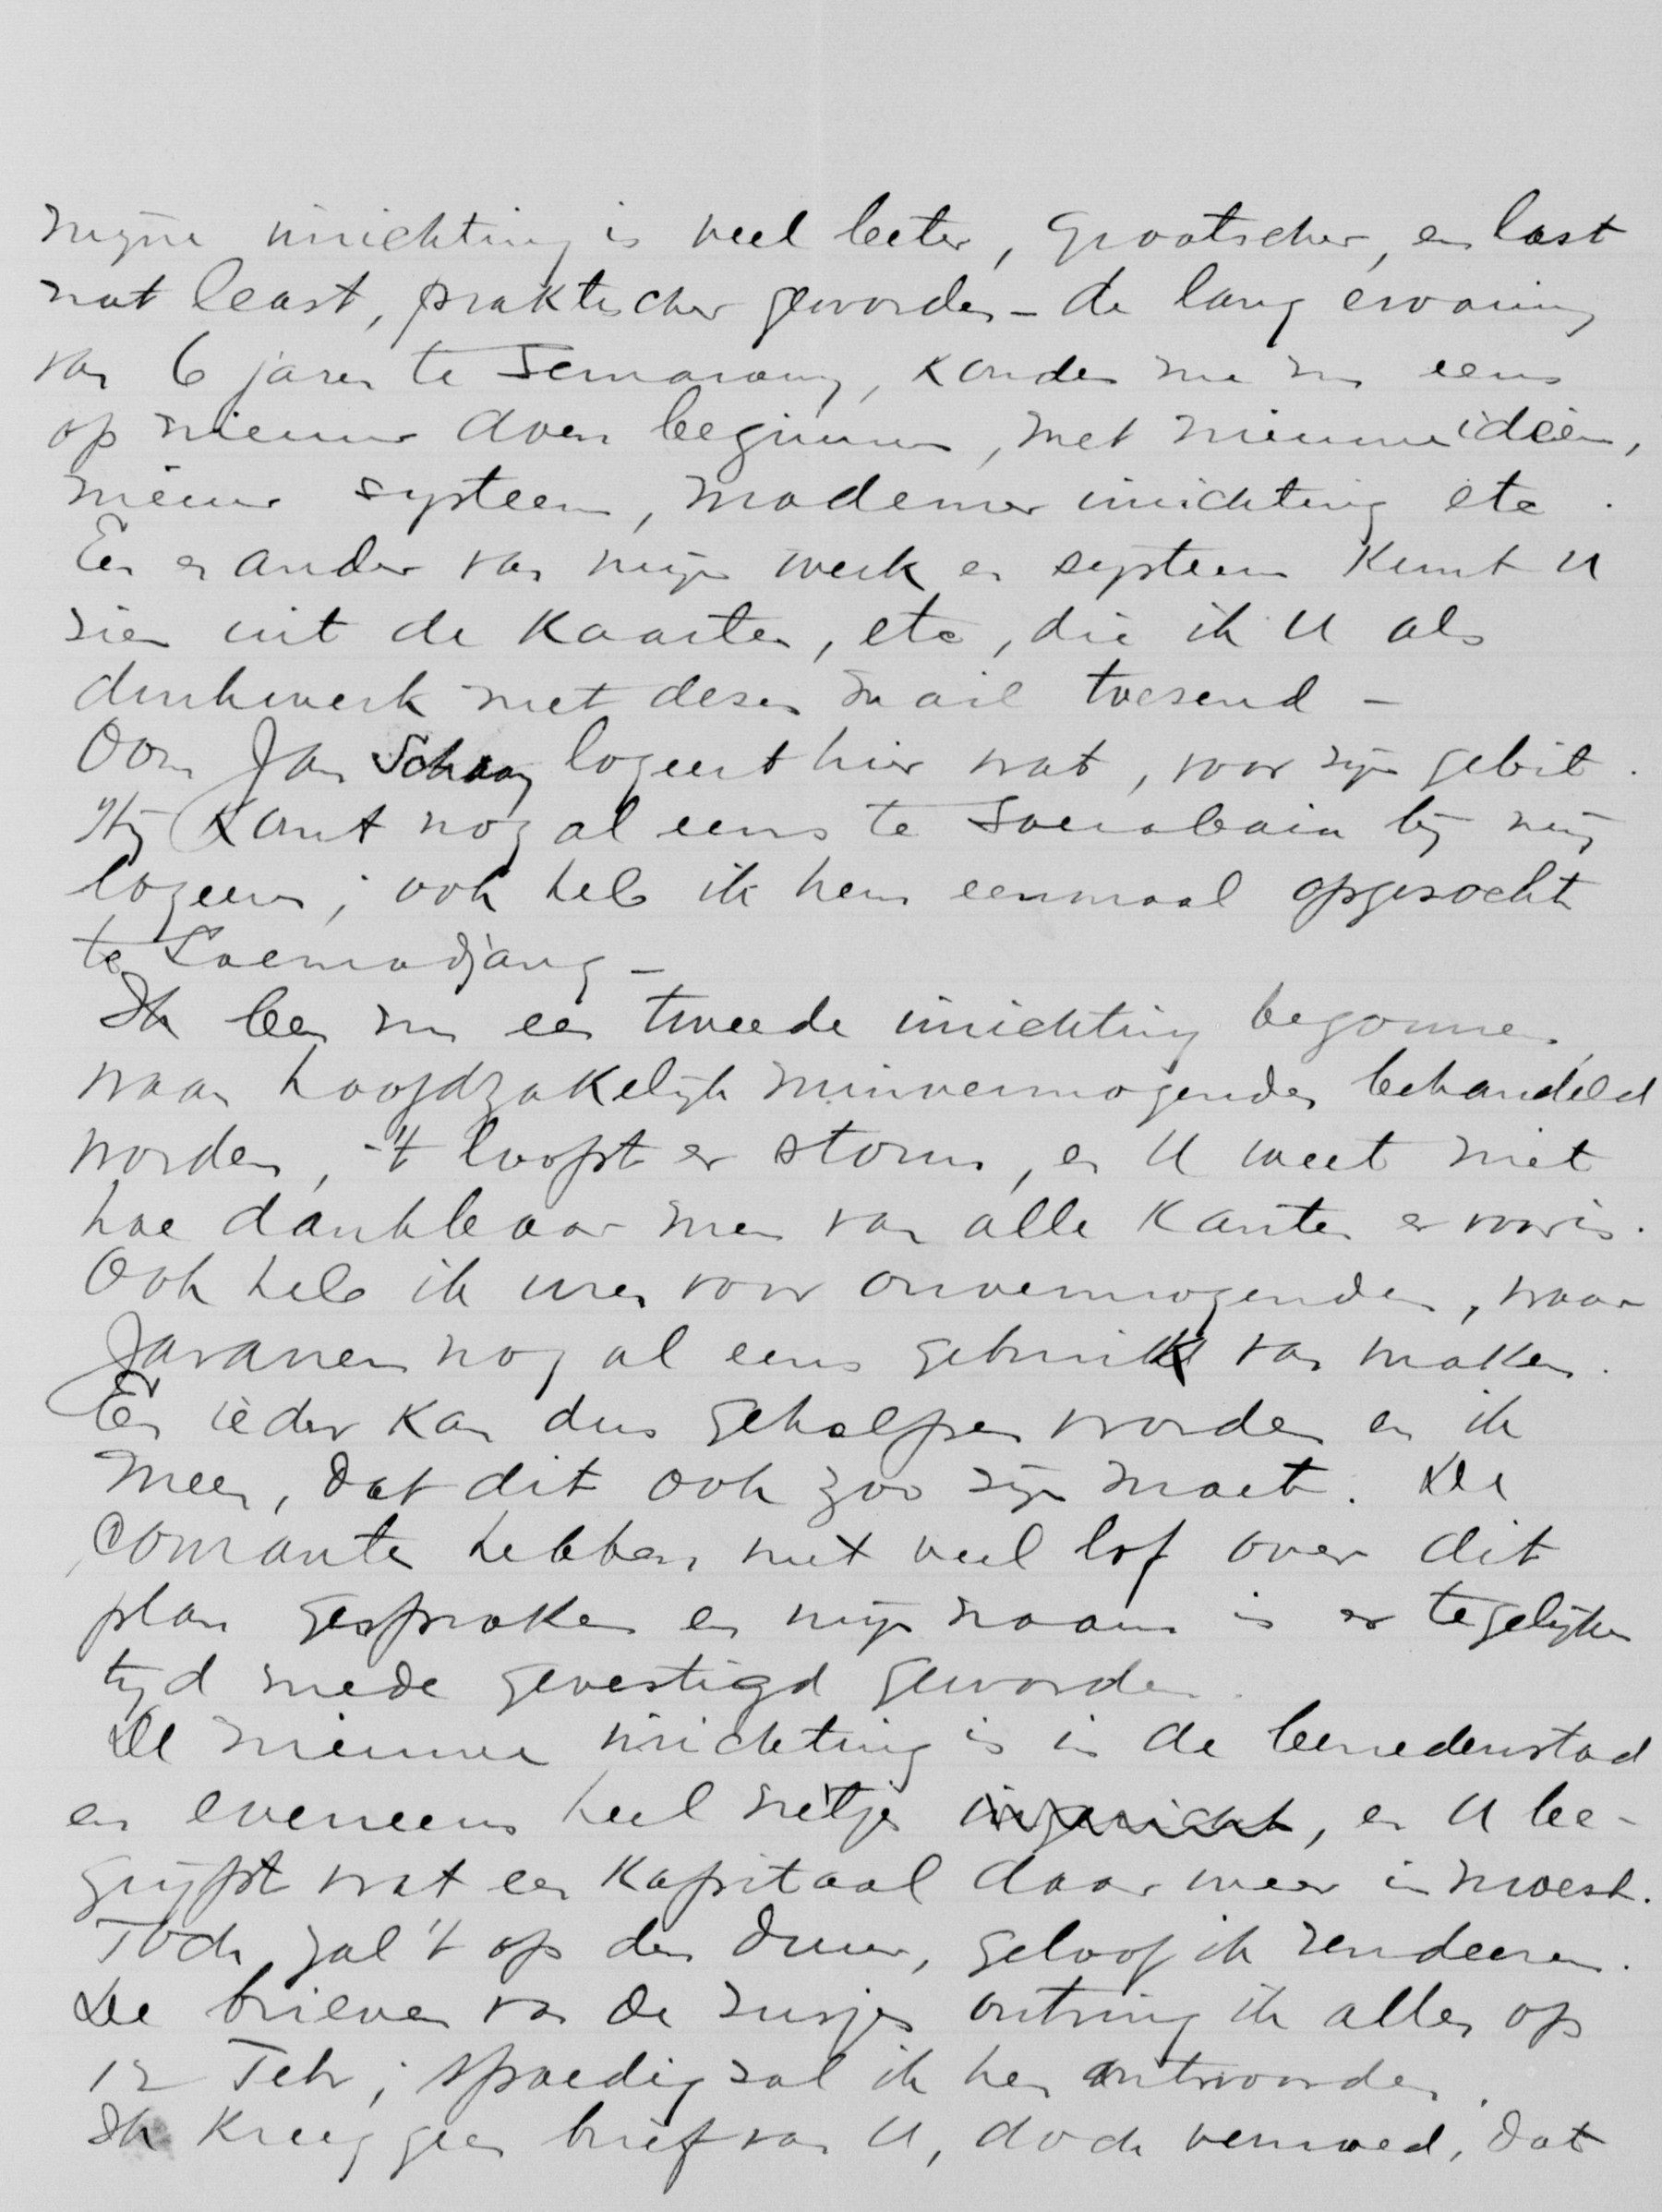 mijne inrichting is veel beter, grootscher, en last
not least, praktischer geworden - de lang ervaring
van 6 jaren te Semarang, konden me nu eens
op nieuw doen beginnen, met nieuwe ideeën,
nieuw systeem, moderner inrichting etc.
Een en ander van mijn werk en systeem kunt U
zien uit de kaarten, etc, die ik U als
drukwerk met dezen mail toezend -
Oom Jan Schaay logeert hier wat, voor zijn gebit.
Hij komt nog al eens te Soerabaia bij mij
logeeren; ook heb ik hem eenmaal opgezocht
te Loemadjang -
Ik ben nu een tweede inrichting begonnen,
waar hoofdzakelijk minvermogenden behandeld
worden, - 't loopt er storm, en U weet niet
hoe dankbaar men van alle kanten er voor is.
Ook heb ik uren voor onvermogenden, waar
Javanen nog al eens gebruik van maken.
Een ieder kan dus geholpen worden en ik
meen, dat dit ook zoo zijn moet. De
Couranten hebben met veel lof over dit
plan gesproken en mijn naam is er tegelijker
tijd mede gevestigd geworden.
De nieuwe inrichting is in de benedenstad
en eveneens heel netjes ingericht, en U be-
grijpt wat een kapitaal daar weer in moest.
Toch zal 't op den duur, geloof ik rendeeren.
De brieven van de zusjes ontving ik allen op
12 Febr; spoedig zal ik hen antwoorden.
Ik kreeg geen brief van U, doch vermoed, dat